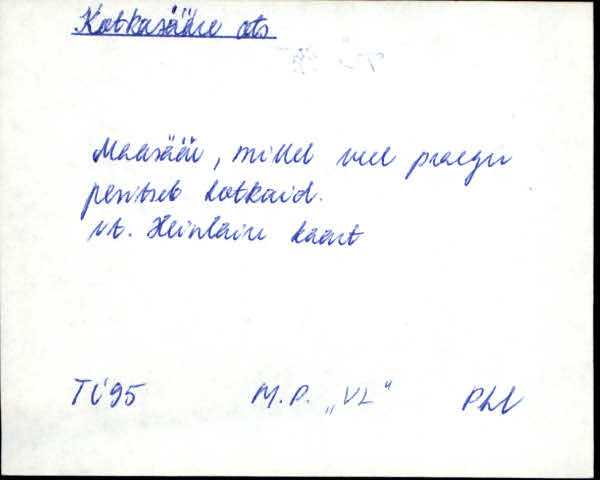 Kotkasääre ots
Maasääre, millel veel praegu
pesitseb kotkaid.
vt. Heinlaiu kaart
TÜ'95 M.P. „VL" Phl